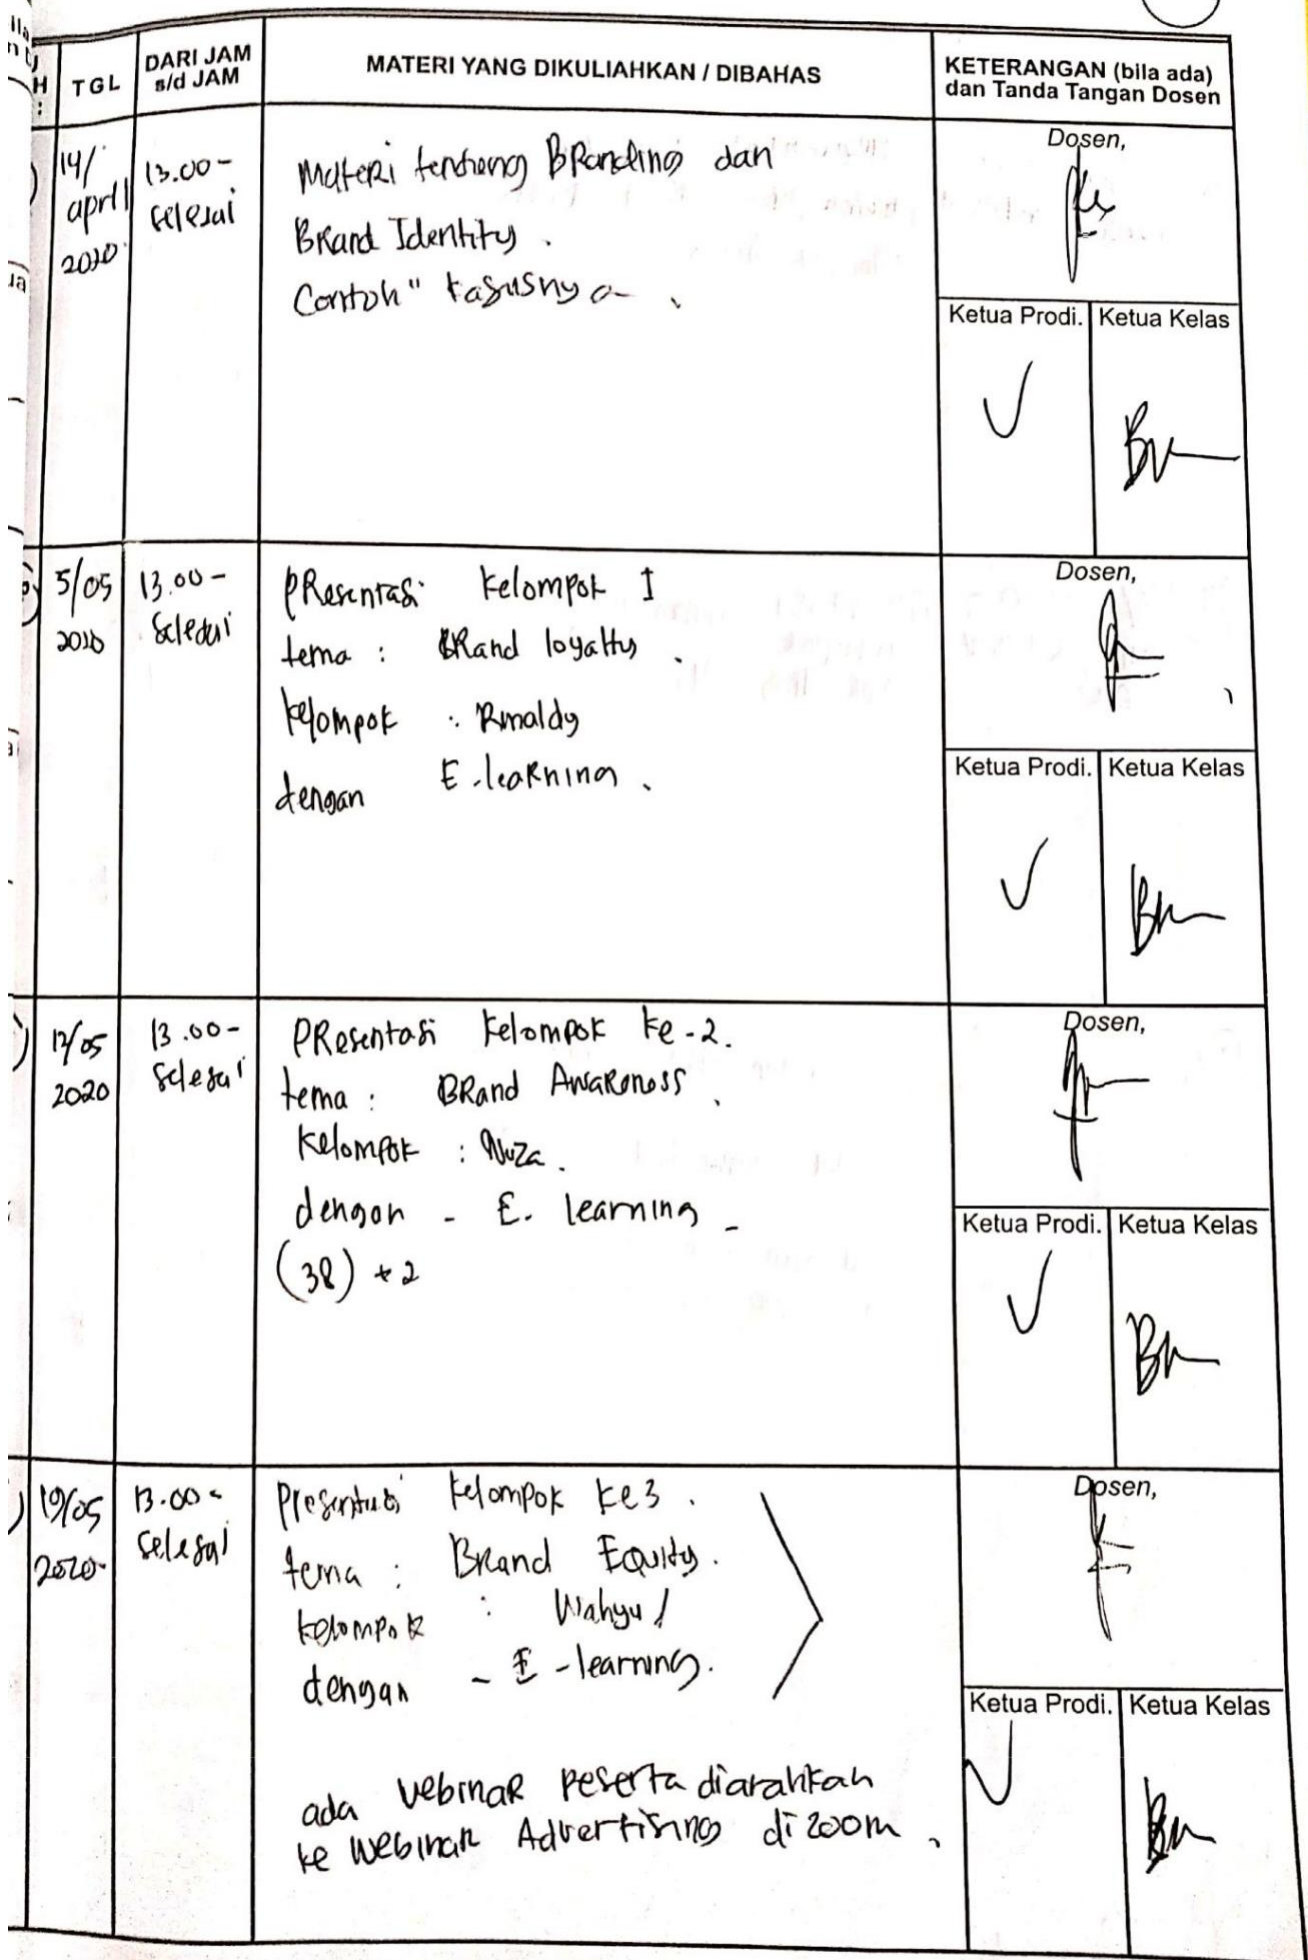 TGL
DARI JAM
s/d JAM
MATERI YANG DIKULIAHKAN / DIBAHAS
KETERANGAN (bila ada)
dan Tanda Tangan Dosen
14/
april
2020
13.00 -
selesai
Materi tentang Branding dan
Brand Identity .
Contoh" kasusnya .
Dosen,
Ketua Prodi.
Ketua Kelas
5/05
2020
13.00 -
selesai
Presentasi kelompok I
tema : Brand loyalty .
kelompok : Rinaldy
dengan E-learning .
Dosen,
Ketua Prodi.
Ketua Kelas
12/05
2020
13.00 -
selesai
Presentasi kelompok ke-2.
tema : Brand Awareness .
Kelompok :
dengan - E. learning -
(38) + 2
Dosen,
Ketua Prodi.
Ketua Kelas
19/05
2020
13.00 -
selesai
Presentasi kelompok ke3 .
tema : Brand Equity .
kelompok : Wahyu
dengan - E-learning.
ada webinar peserta diarahkan
ke webinar Advertising di zoom .
Dosen,
Ketua Prodi.
Ketua Kelas